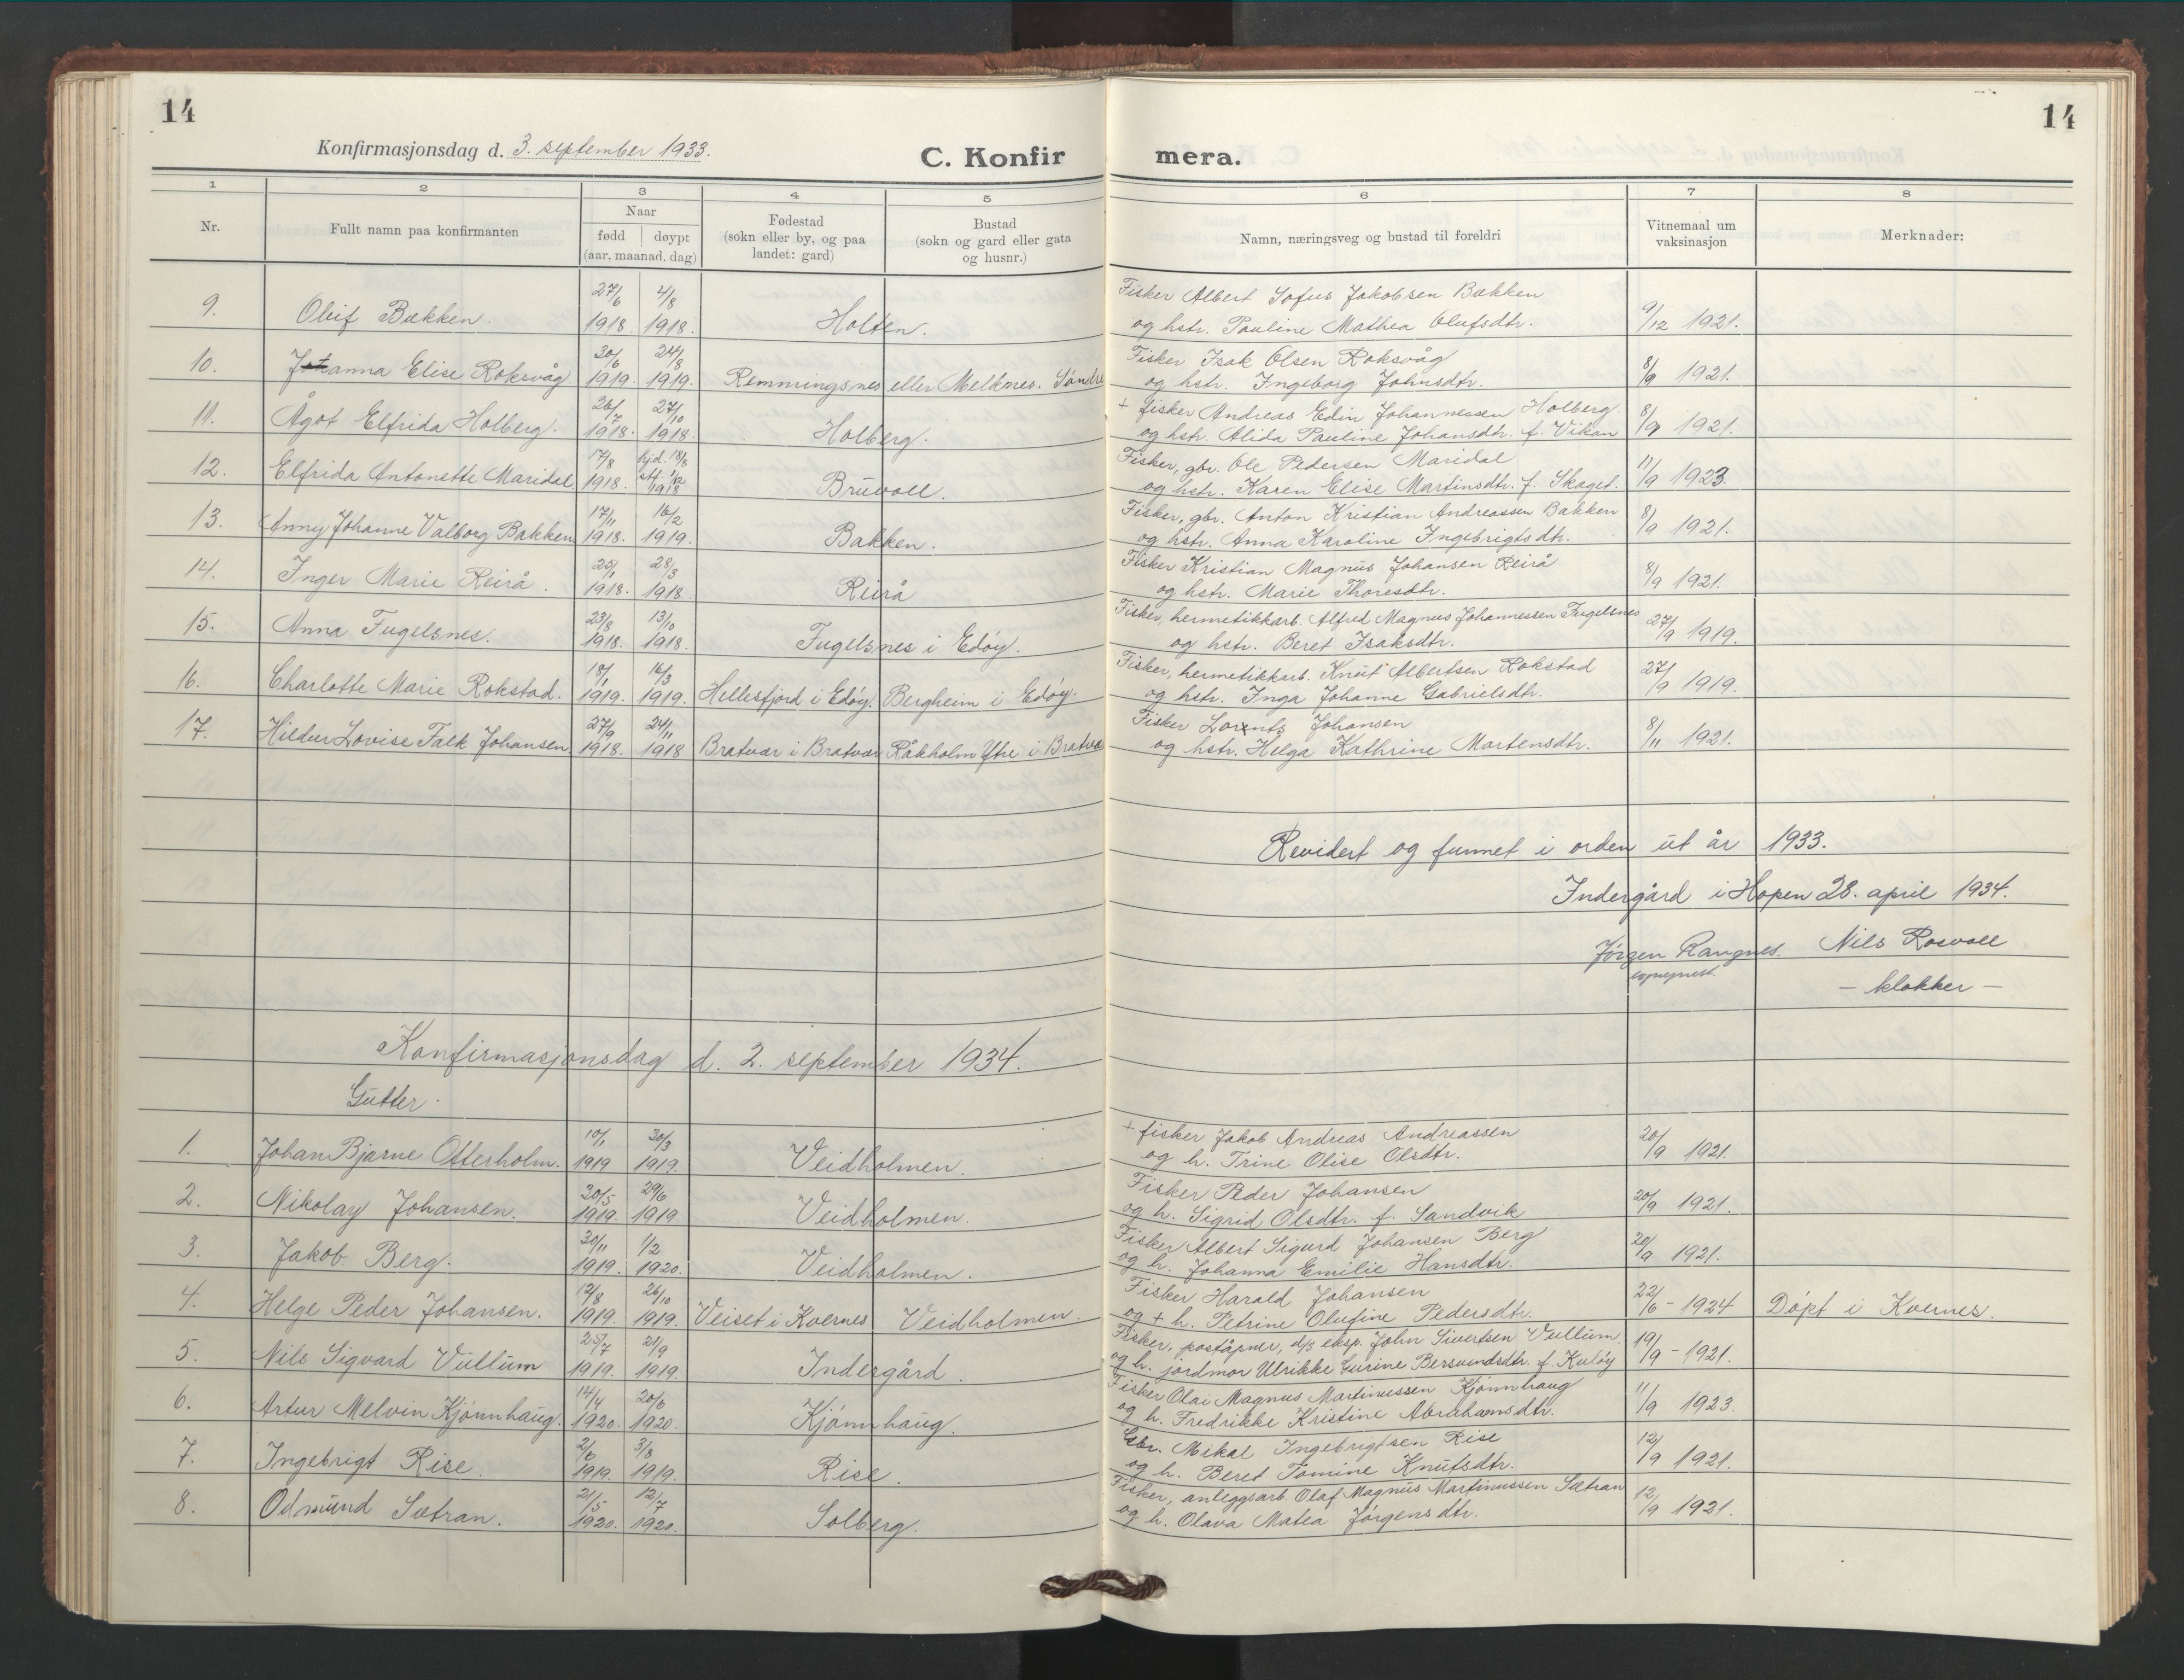 14
14
Konfirmasjonsdag d. 3. september 1933.
C. Konfir mera.
1 2 3 4 5 6 7 8
Nr.
Fullt namn paa konfirmanten
Naar
fødd døypt
(aar, maanad. dag)
Fødestad
(sokn eller by, og paa
landet: gard)
Bustad
(sokn og gard eller gata
og husnr.)
Namn, næringsveg og bustad til foreldri
Vitnemaal um
vaksinasjon
Merknader:
9. Oleif Bækken. 27/6 1918. 4/8 1918. Holten. Fisker Albert Sofus Jakobsen Bækken
og hstr. Pauline Mathea Olufsdtr. 9/12 1921.
10. Johanna Elise Roksvåg 30/6 1919. 24/8 1919. Remmingsnes eller Melknes. Søndre Fisker Isak Olsen Roksvåg
og hstr. Ingeborg Johnsdtr. 8/9 1921.
11. Ågot Elfrida Holberg. 26/7 1918. 27/10 1918. Holberg. + fisker Andreas Edin Johannessen Holberg
og hstr. Alida Pauline Johansdtr. f. Vikan 8/9 1921.
12. Elfrida Antonette Maridal. 17/8 1918. hjd. 18/8 stf. 1/12 1918 Brüvoll. Fisker, gbr. Ole Pedersen Maridal
og hstr. Karen Elise Martinsdtr. f. Skaget. 11/9 1923.
13. Anny Johanne Valborg Bakken 17/11 1918. 16/2 1919. Bakken. Fisker, gbr. Anton Kristian Andreassen Bakken
og hstr. Anna Karoline Ingebrigtsdtr. 8/9 1921.
14. Inger Marie Reirå. 25/1 1918. 28/3 1918. Reirå Fisker Kristian Magnus Johansen Reirå
og hstr. Marie Thoresdtr. 8/9 1921.
15. Anna Fugelsnes. 23/8 1918. 13/10 1918. Fugelsnes i Edøy. Fisker, hermetikkarb. Alfred Magnus Johannessen Fugelsnes
og hstr. Beret Isaksdtr. 27/9 1919.
16. Charlotte Marie Rokstad. 18/1 1919. 16/3 1919. Hellesfjord i Edøy. Bergheim i Edøy. Fisker, hermetikkarb. Knut Albertsen Rokstad
og hstr. Inga Johanne Gabrielsdtr. 27/9 1919.
17. Hildur Lovise Falk Johansen 27/9 1918. 24/11 1918 Bratvær i Bratvær Råkholm Ytre i Bratvæ Fisker Lorents Johansen
og hstr. Helga Kathrine Martensdtr. 8/11 1921.
Revidert og funnet i orden ut år 1933.
Indergård i Hopen 28. april 1934.
Jørgen Rangnes. Nils Rosvoll
sogneprest. – klokker –
Konfirmasjonsdag d. 2. september 1934.
Gutter.
1. Johan Bjarne Otterholm. 10/1 1919 30/3 1919. Veidholmen. + fisker Jakob Andreas Andreassen
og h. Trine Olise Olsdtr. 20/9 1921.
2. Nikolay Johansen. 30/5 1919. 29/6 1919 Veidholmen. Fisker Peder Johansen
og h. Sigrid Olsdtr. f. Sandvik 20/9 1921.
3. Jakob Berg. 30/11 1919. 1/2 1920. Veidholmen. Fisker Albert Sigurd Johansen Berg
og h. Johanna Emilie Hansdtr. 20/9 1921.
4. Helge Peder Johansen. 12/8 1919. 26/10 1919. Veiset i Kvernes Veidholmen. Fisker Harald Johansen
og + h. Petrine Olufine Pedersdtr. 22/6 - 1924 Døpt i Kvernes.
5. Nils Sigvard Vullum 25/7 1919. 21/9 1919. Indergård. Fisker, poståpner, d/s eksp. John Sivertsen Vullum
og h. jordmor Ulrikke Gurine Bersvendsdtr. f. Kuløy 19/9 - 1921.
6. Artur Melvin Kjønnhaug. 14/4 1920. 20/6 1920. Kjønnhaug. Fisker Olai Magnus Martinussen Kjønnhaug
og h. Fredrikke Kristine Abrahamsdtr. 11/9 1923.
7. Ingebrigt Rise. 2/6 1919. 3/8 1919. Rise. Gbr. Mikal Ingebrigtsen Rise
og h. Beret Tomine Knutsdtr. 12/9 1921.
8. Odmund Sætran. 21/5 1920. 12/7 1920. Solberg. Fisker, anleggsarb. Olaf Magnus Martinussen Sætran
og h. Olava Matea Jørgensdtr. 12/9 1921.